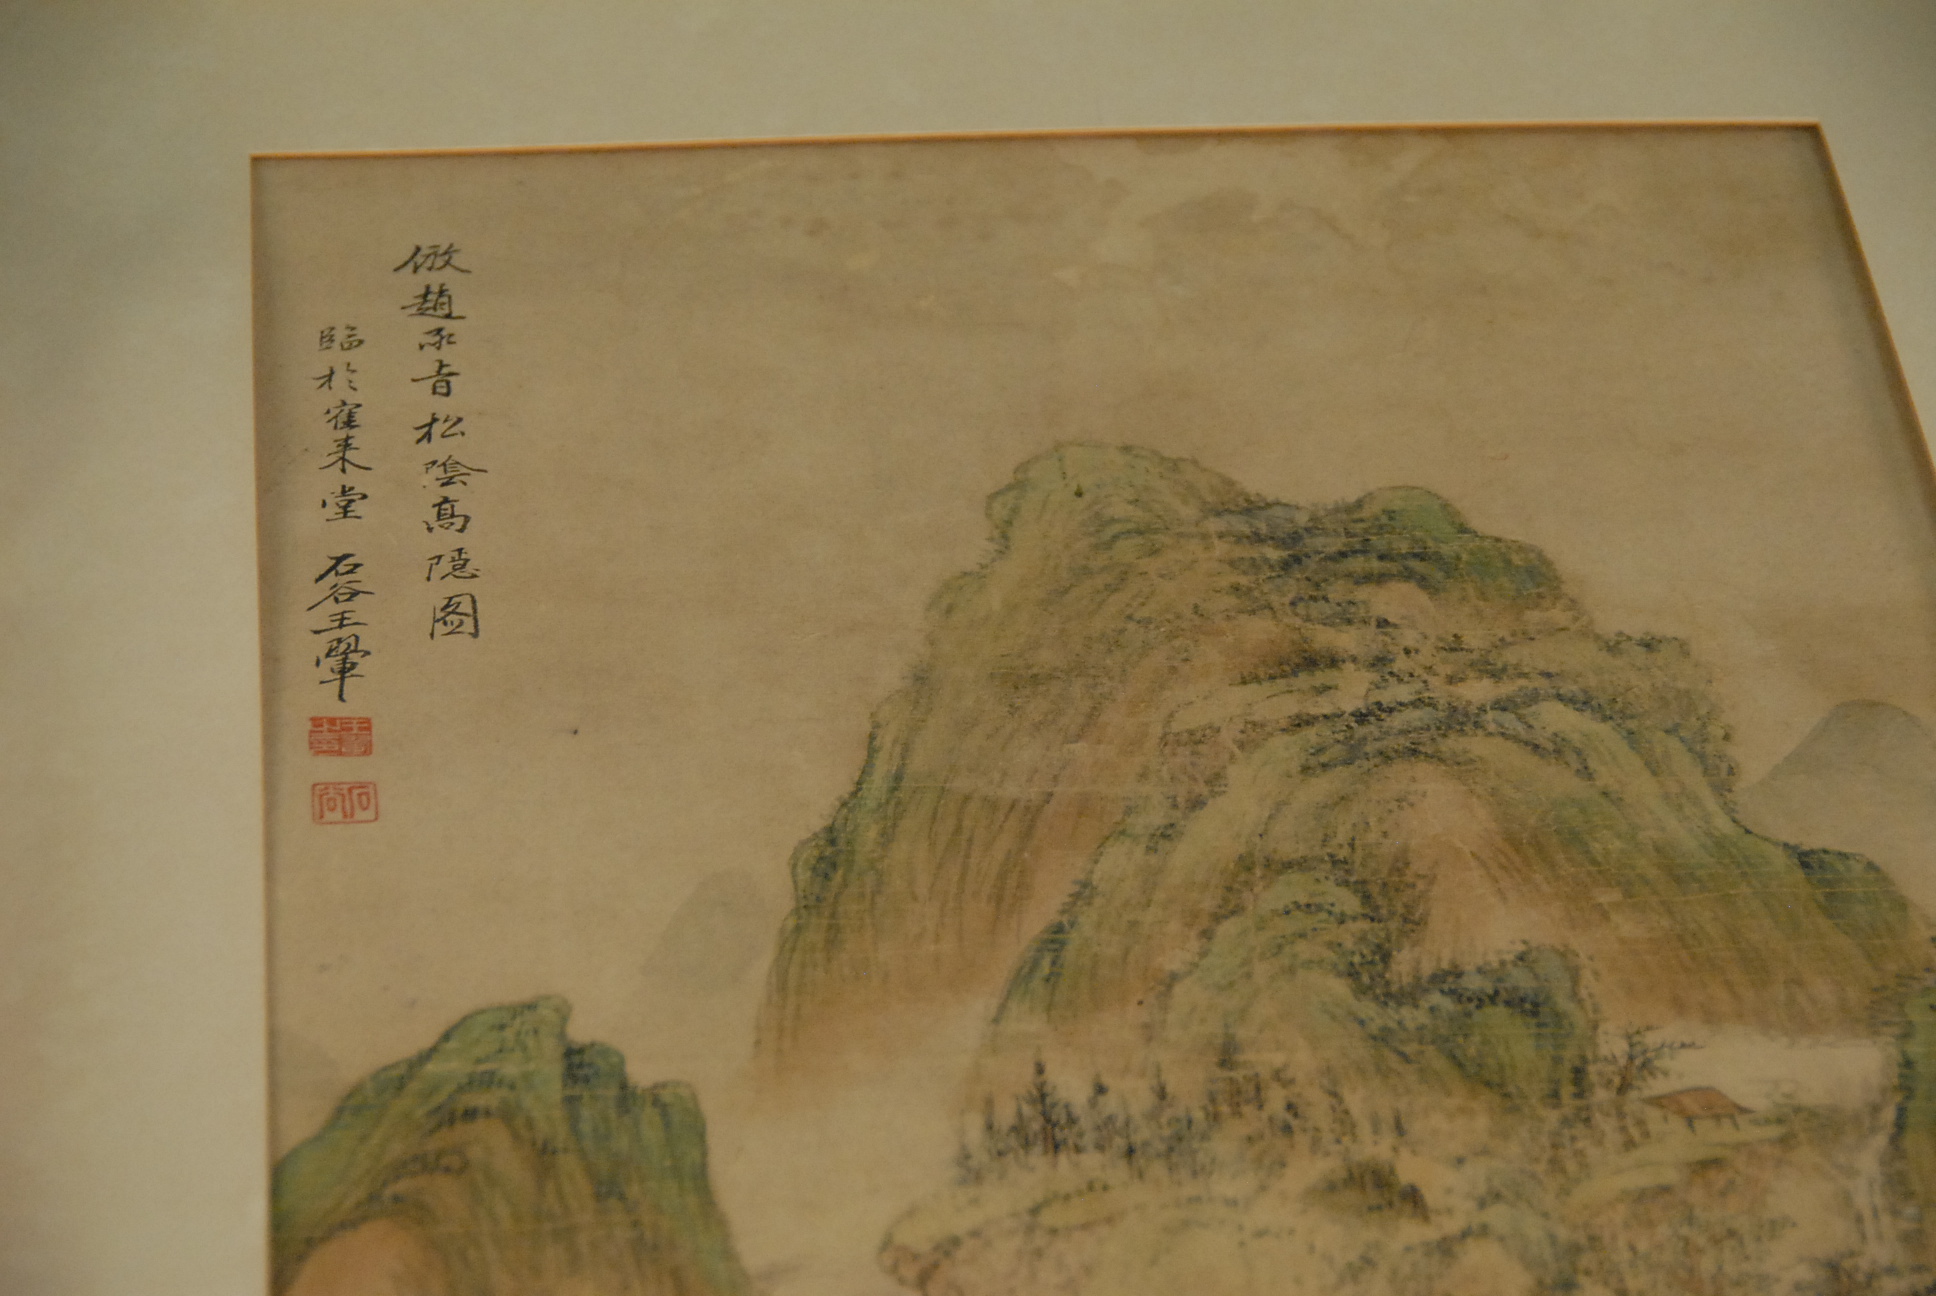 倣趙承旨松陰高隱图
臨於寉来堂 石谷王翬
王翬
石谷